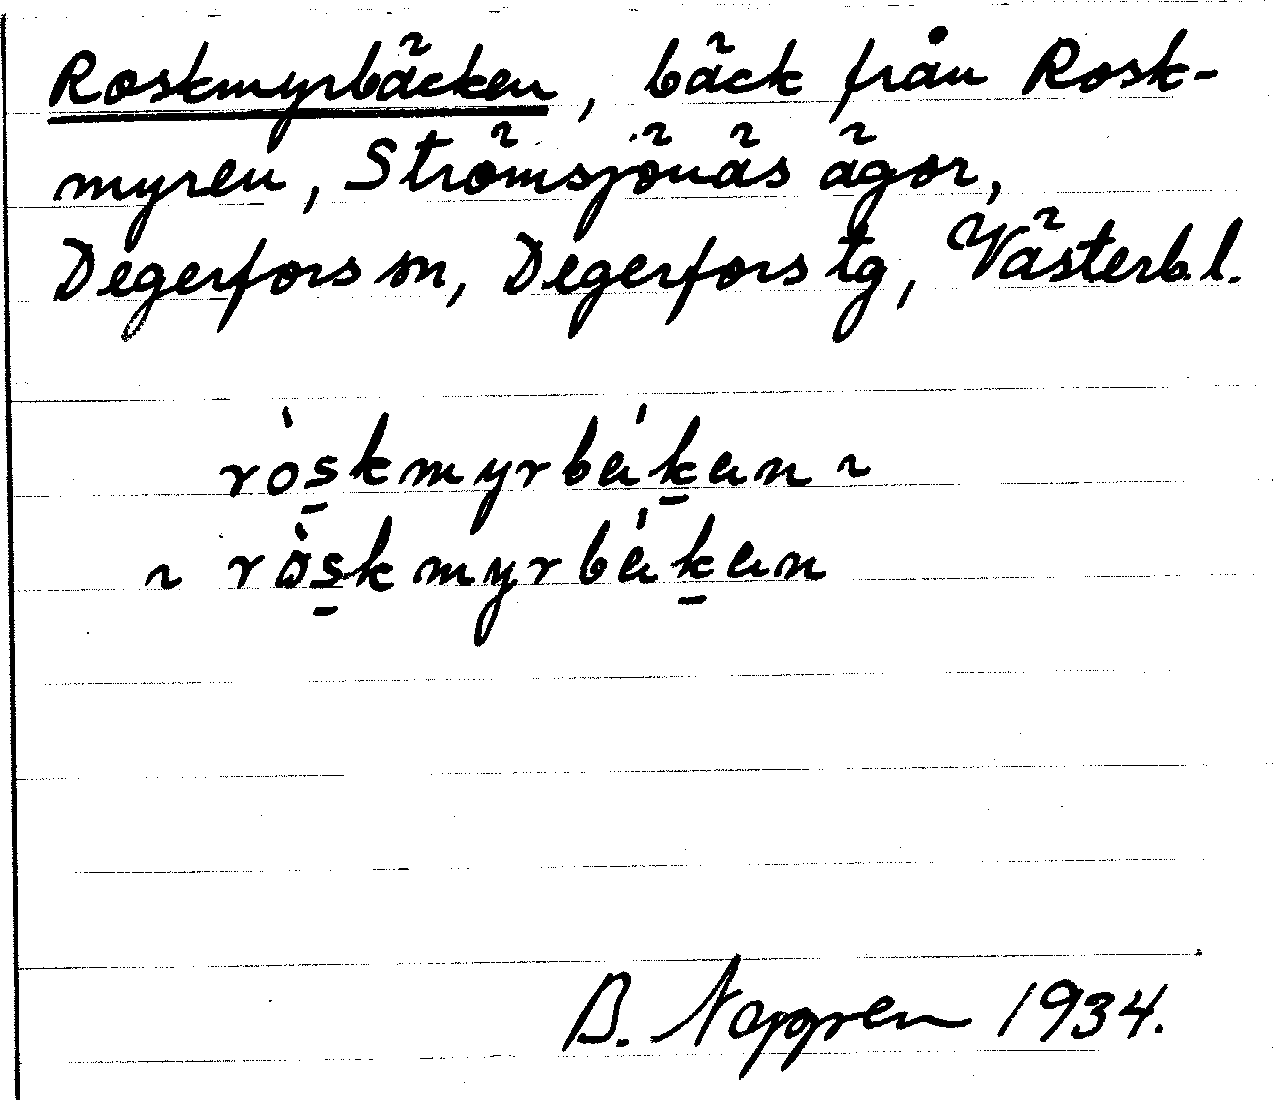 Roskmyrbäcken, bäck från Rosk-
myren, Strömsjönäs ägor,
Degerfors sn, Degerfors tg, Västerb.l.
ròs̱kmyrbéḵen ~
~ ròs̱kmyrbéḵen
B. 1934.